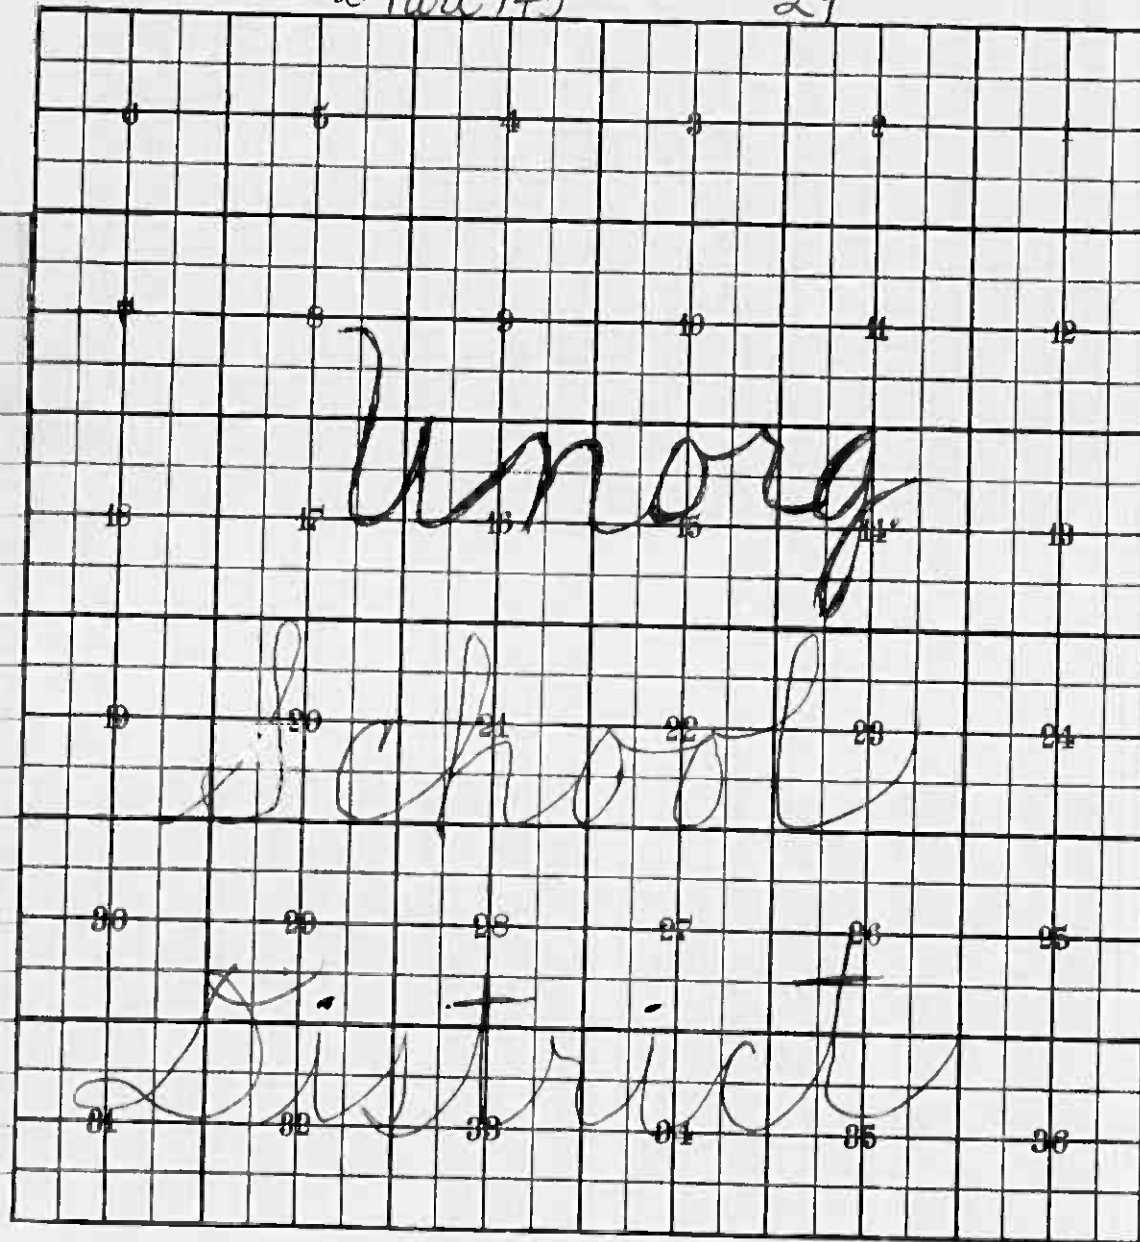 6 5 4 3 2 1
7 8 9 10 11 12
Unorg
18 17 16 15 14 13
19 20 21 22 23 24
School
30 29 28 27 26 25
District
31 32 33 34 35 36